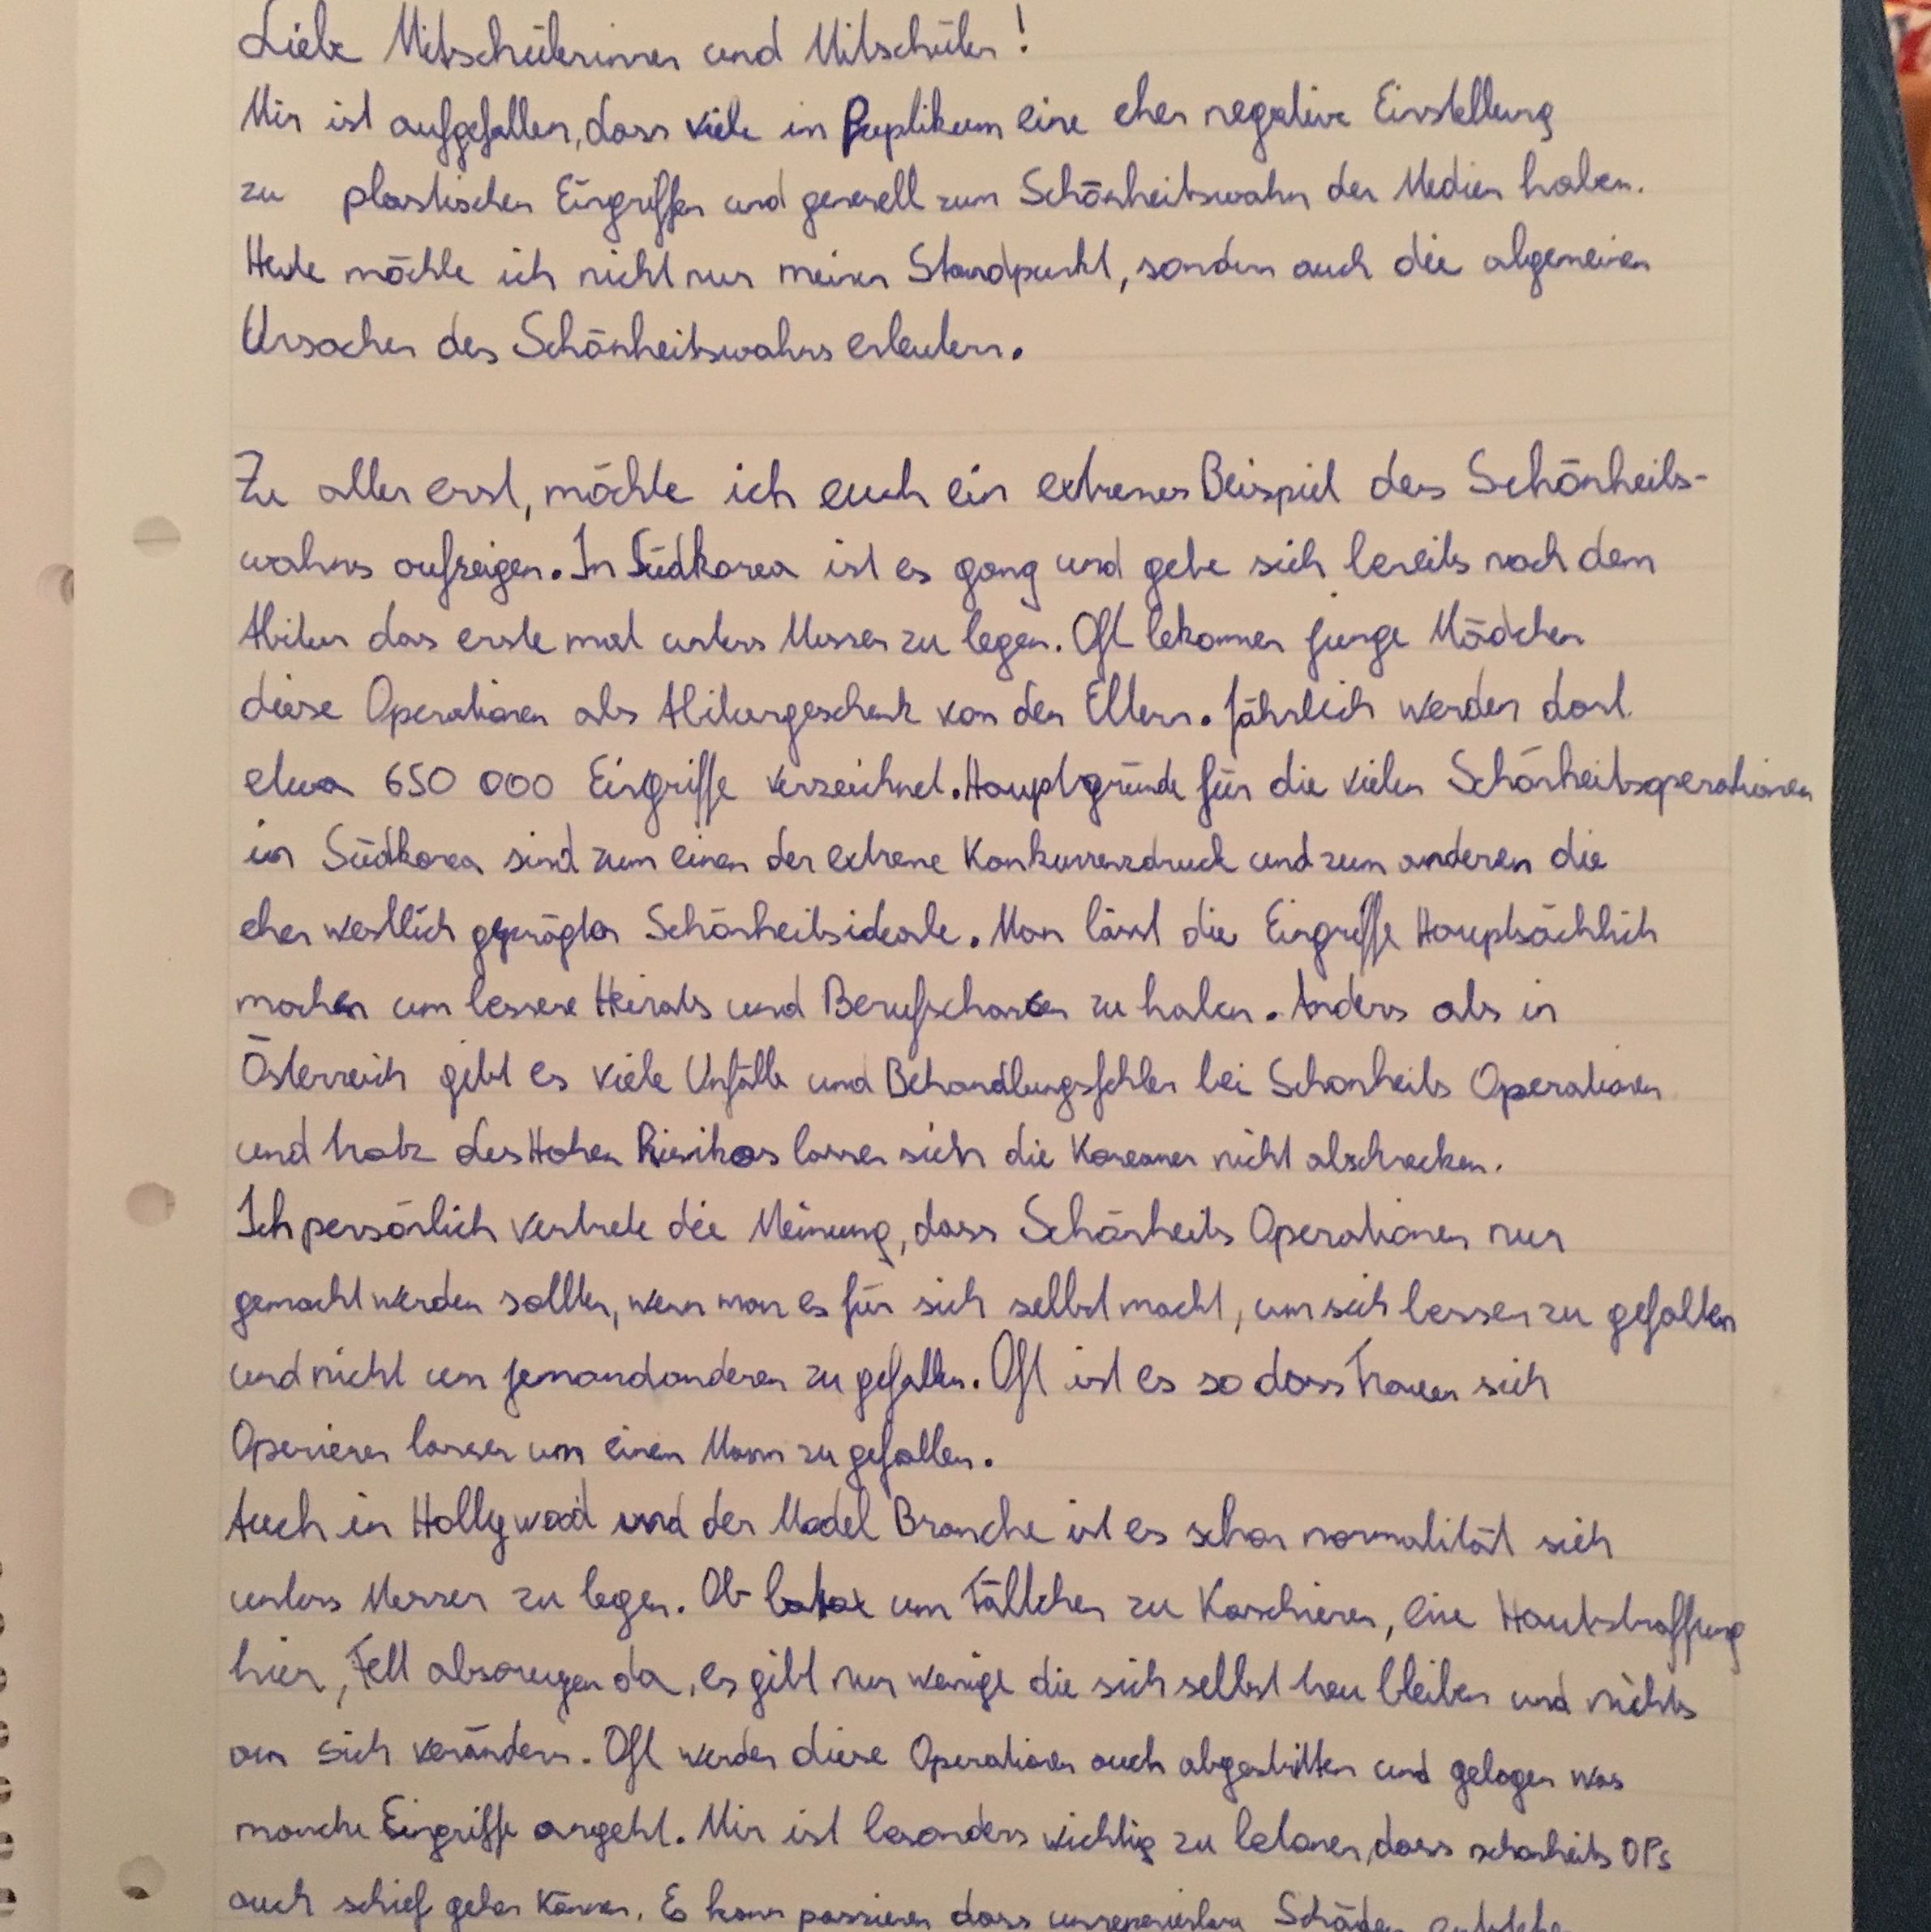 Liebe Mitschülerinnen und Mitschüler!
Mir ist aufgefallen, dass viele im Puplikum eine eher negative Einstellung
zu plastischen Eingriffen und generell zum Schönheitswahn der Medien haben.
Heute möchte ich nicht nur meinen Standpunkt, sondern auch die algemeinen
Ursachen des Schönheitswahns erleutern.
Zu aller erst, möchte ich euch ein extremes Beispiel des Schönheits-
wahns aufzeigen. In Südkorea ist es gang und gebe sich bereits nach dem
Abitur das erste mal unters Messer zu legen. Oft bekommen junge Mädchen
diese Operationen als Abiturgeschenk von den Eltern. Jährlich werden dort
etwa 650 000 Eingriffe verzeichnet. Hauptgründe für die vielen Schönheitsoperationen
in Südkorea sind zum einen der extreme Konkurrenzdruck und zum anderen die
eher westlich geprägten Schönheitsideale. Man lässt die Eingriffe Hauptsächlich
machen um bessere Heirats und Berufschancen zu haben. Anders als in
Österreich gibt es viele Unfälle und Behandlungsfehler bei Schönheits Operationen
und trotz des Hohen Riesikos lassen sich die Koreaner nicht abschrecken.
Ich persönlich vertrete die Meinung, dass Schönheits Operationen nur
gemacht werden sollten, wenn man es für sich selbst macht, um sich besser zu gefallen
und nicht um jemandanderen zu gefallen. Oft ist es so dass Frauen sich
Operieren lassen um einen Mann zu gefallen.
Auch in Hollywood und der Model Branche ist es schon normalität sich
unters Messer zu legen. Ob botox um Fältchen zu Kaschieren, eine Hautstraffung
hier, Fett absaugen da, es gibt nur wenige die sich selbst treu bleiben und nichts
an sich verändern. Oft werden diese Operationen auch abgestritten und gelogen was
manche Eingriffe angeht. Mir ist besonders wichtig zu betonen, dass schönheits OPs
auch schief gehen können. Es kann passieren dass Schäden